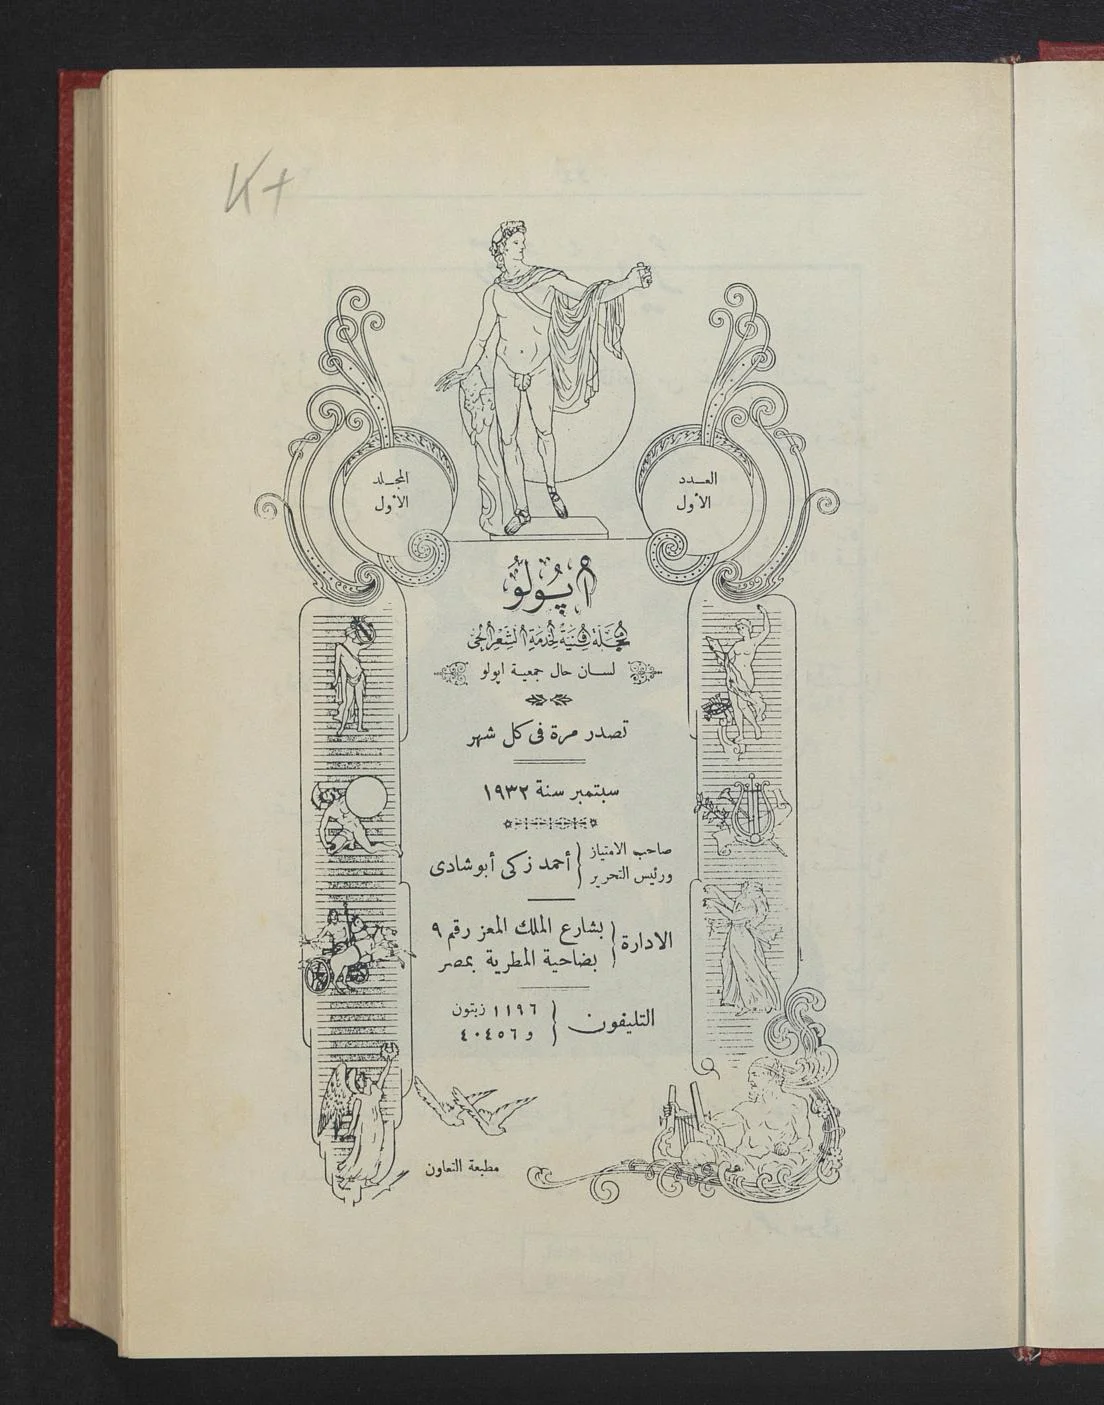 K+
العدد
الأول
المجلد
الأول
اپولو
مجلة فنية لخدمة الشعر الحي
لسان حال جمعية اپولو
تصدر مرة فى كل شهر
سبتمبر سنة ١٩٣٢
صاحب الامتياز
ورئيس التحرير
أحمد زكى أبو شادى
الادارة
بشارع الملك المعز رقم ٩
بضاحية المطرية بمصر
التليفون
١١٩٦ زيتون
و ٤٠٤٥٦
مطبعة التعاون